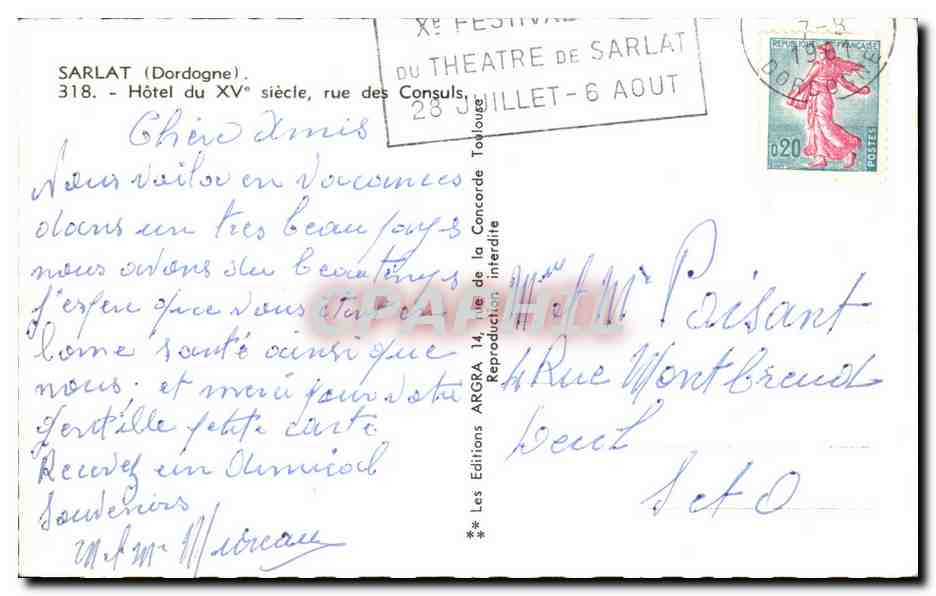 SARLAT (Dordogne).
318. - Hôtel du XVe siècle, rue des Consuls.
Xe FESTIVAL
DU THEATRE DE SARLAT
28 JUILLET - 6 AOUT
7-8
19
DOR
REPUBLIQUE FRANÇAISE
0,20
POSTES
Chers Amis
Nous voila en vacances
dans un tres beau pays
nous avons du beau temps
j'espere que vous en
bonne santé ainsi que
nous. et merci pour votre
gentille petite carte
Recevez un amical
Souvenirs
M et Mme
** Les Editions ARGRA 14, rue de la Concorde Toulouse
Reproduction interdite
CPAPHIL
Mme et Mr Poisant
4 Rue
Deuil
S et O